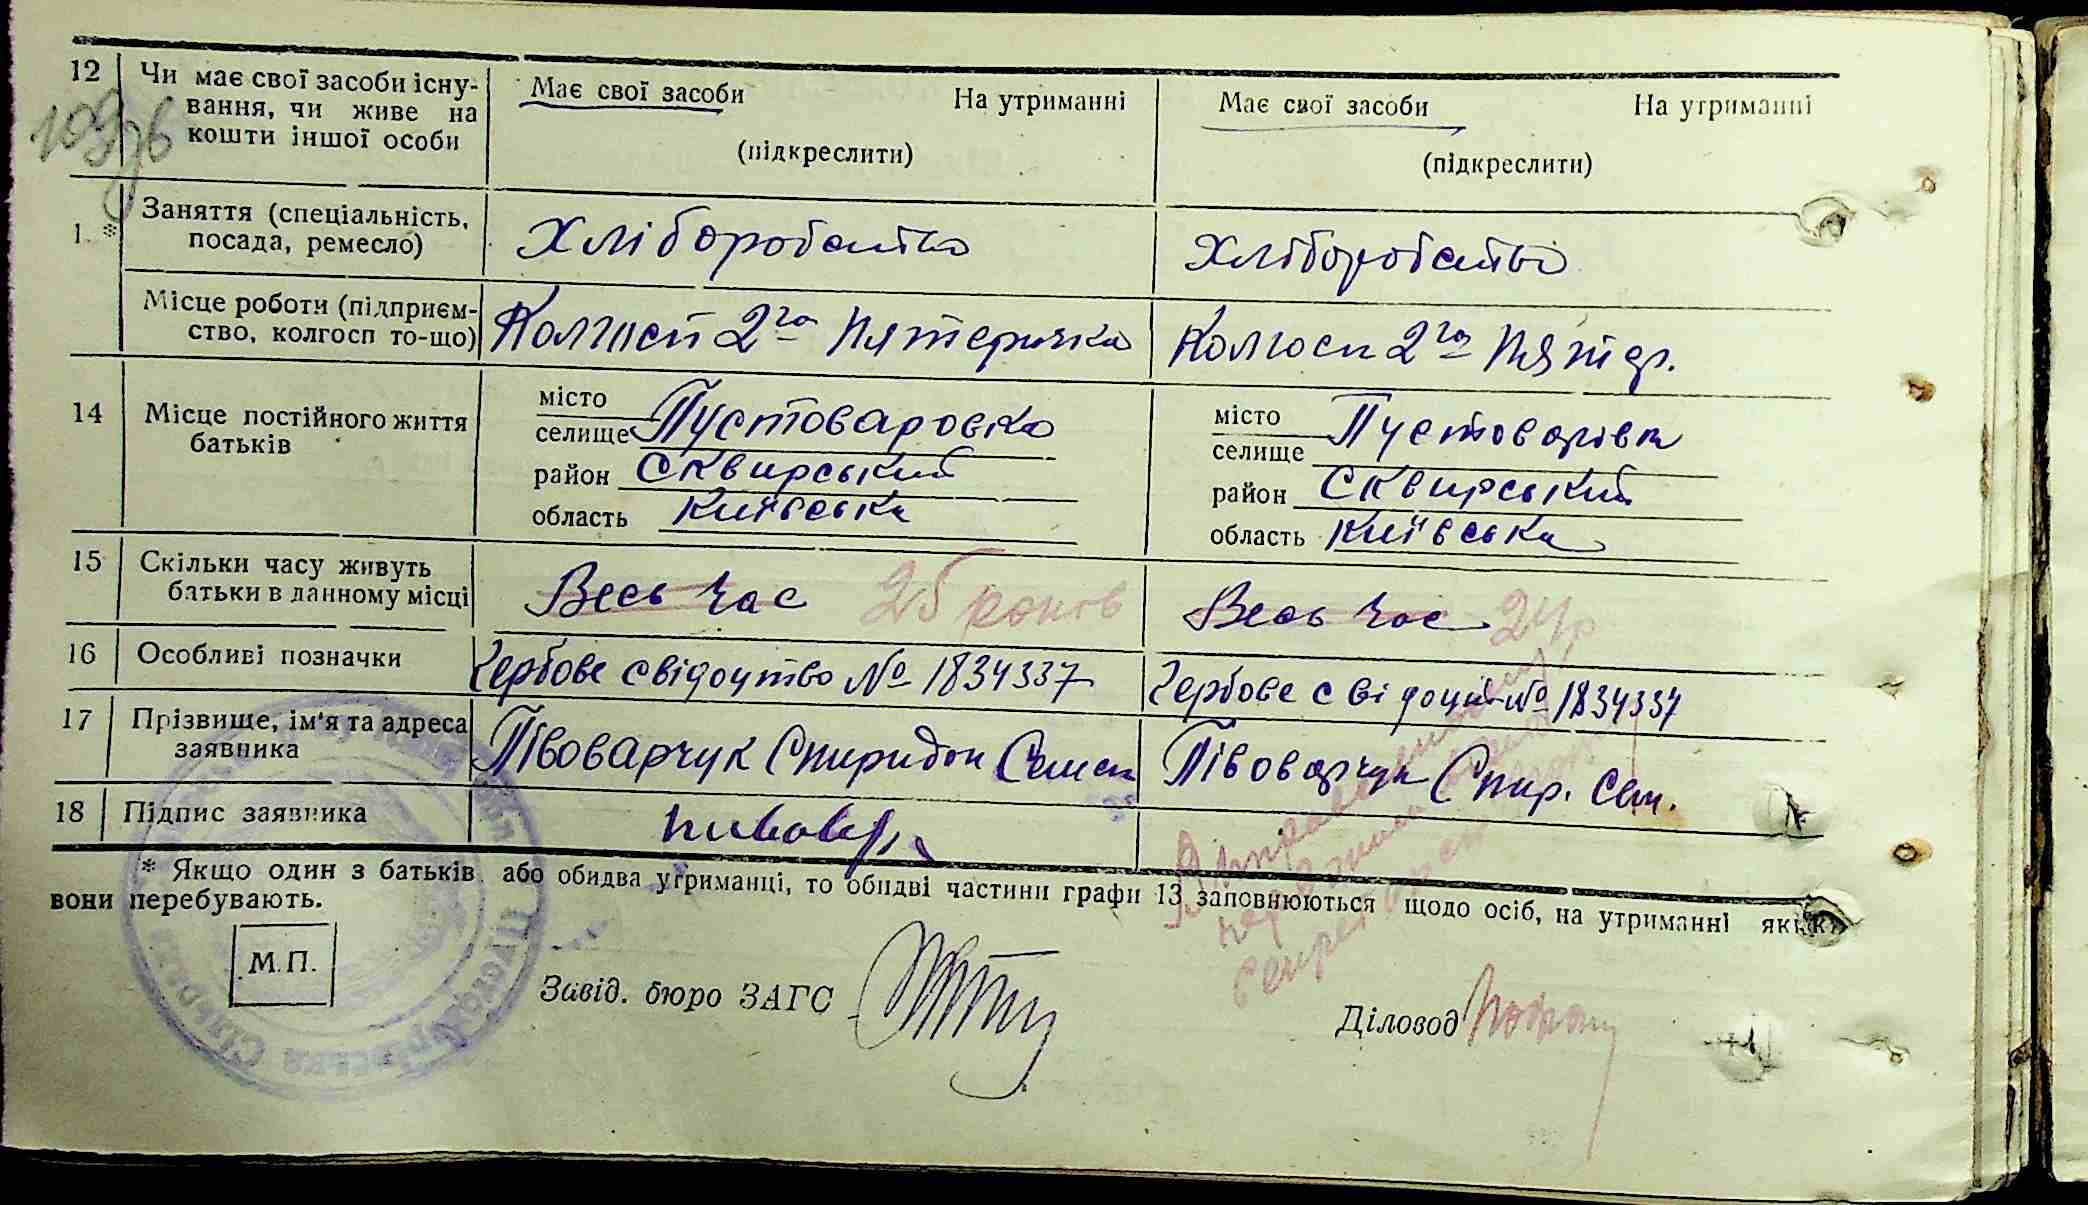 12 Чи має свої засоби існу-
вання, чи живе на
кошти іншої особи
Має свої засоби На утриманні
(підкреслити)
Має свої засоби На утриманні
(підкреслити)
1 * Заняття (спеціальність,
посада, ремесло)
Хліборобство
Хліборобство
Місце роботи (підприєм-
ство, колгосп то-що)
Колгосп 2га Пятерічка
Колгосп 2га Пятер.
14 Місце постійного життя
батьків
місто
селище Пустоваровка
район Сквирський
область Київська
місто
селище Пустоварівка
район Сквирський
область Київська
15 Скільки часу живуть
батьки в данному місці
Весь час 25 років
Весь час 24 р
16 Особливі позначки
Гербове свідоцтво № 1834337
Гербове свідоцт № 1834337
17 Прізвище, ім'я та адреса
заявника
Півоварчук Спиридон Семен
Півоварчук Спир. Сем.
18 Підпис заявника
* Якщо один з батьків або обидва утриманці, то обидві частини графи 13 заповнюються щодо осіб, на утриманні яких
вони перебувають.
М.П.
Завід. бюро ЗАГС
Діловод